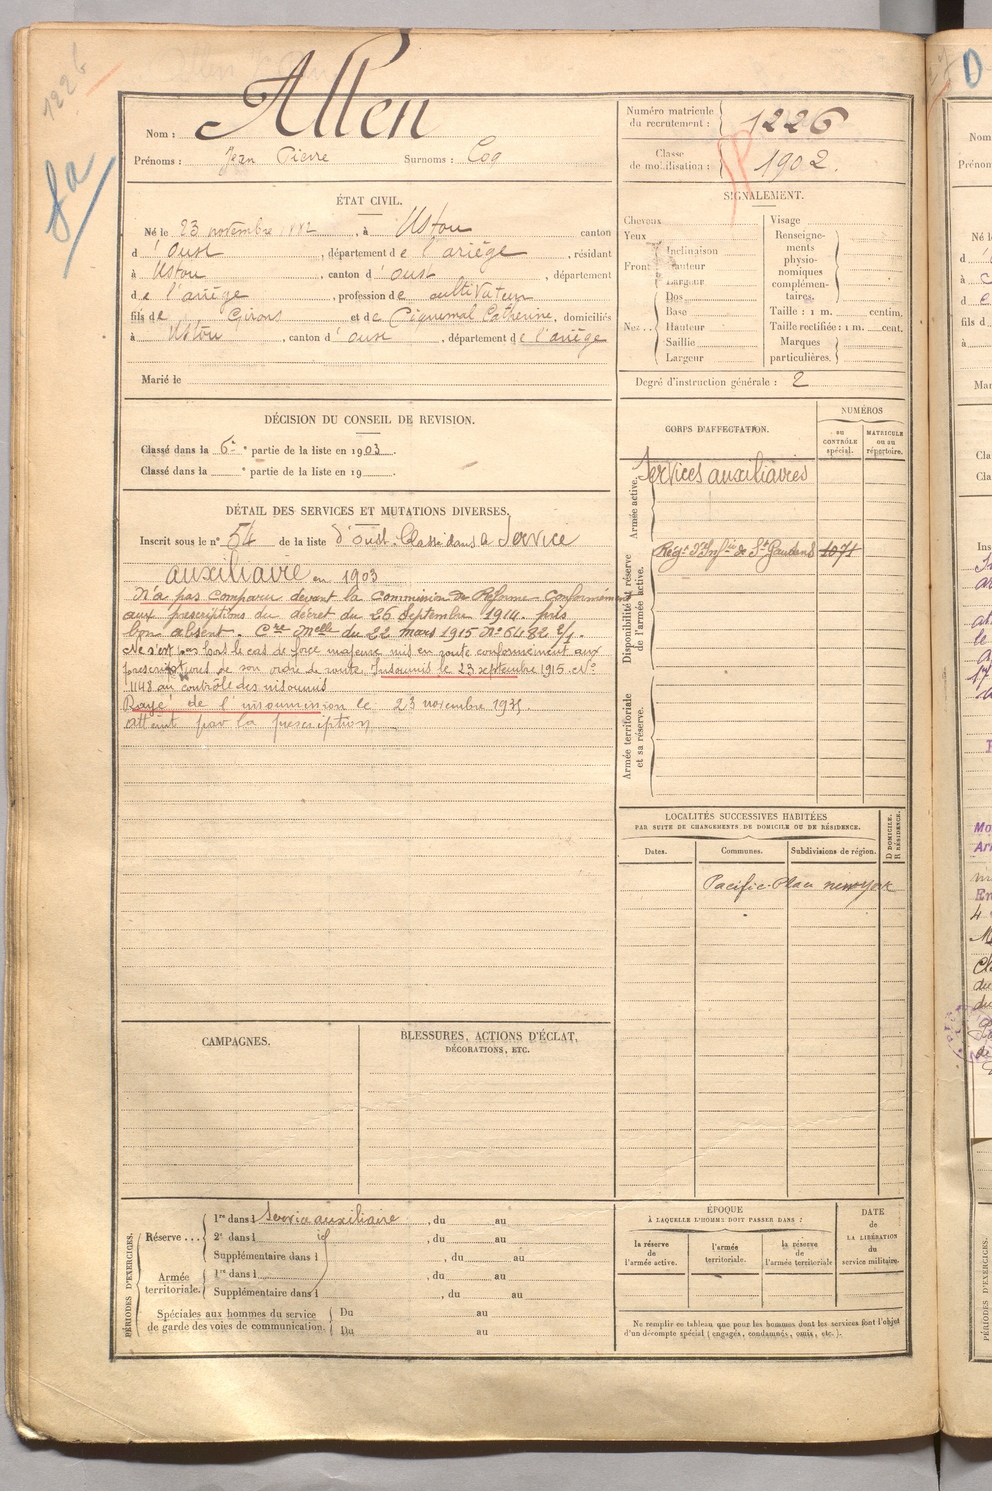 1226
8a
Allen
Nom :
Prénoms : Jean Pierre Surnoms : Coq
Numéro matricule du recrutement : 1226
Classe de mobilisation : 1902.
ÉTAT CIVIL.
Né le 23 novembre 1882, à Ustou canton
d'Oust, département de l'ariège, résidant
à Ustou, canton d'oust, département
de l'ariège, profession de cultivateur
fils de Girons et de Piquemal Catherine, domiciliés
à Ustou, canton d'oust, département de l'ariège
Marié le
SIGNALEMENT.
Cheveux
Yeux
Front
Inclinaison
Hauteur
Largeur
Nez
Dos
Base
Hauteur
Saillie
Largeur
Visage
Renseignements physionomiques complémentaires.
Taille : 1 m. centim.
Taille rectifiée : 1 m. cent.
Marques particulières.
Degré d'instruction générale : 2
DÉCISION DU CONSEIL DE REVISION.
Classé dans la 6e partie de la liste en 1903.
Classé dans la e partie de la liste en 19
CORPS D'AFFECTATION.
NUMÉROS
au CONTRÔLE spécial.
MATRICULE ou au répertoire.
Armée active.
Services auxiliaires
Disponibilité et réserve de l'armée active.
Régt d'Infie de St Gaudens 1071
Armée territoriale et sa réserve.
DÉTAIL DES SERVICES ET MUTATIONS DIVERSES.
Inscrit sous le n° 54 de la liste d'oust. Classé dans le Service
auxiliaire en 1903
N'a pas comparu devant la commission de Réforme conformément
aux prescriptions du décret du 26 Septembre 1914. pris
bon absent. Cre Melle du 22 mars 1915 N° 6482 2/1.
Ne s'est pas hors le cas de force majeure mis en route conformément aux
prescriptions de son ordre de route. Insoumis le 23 septembre 1915. N°
1148 au contrôle des insoumis
Rayé de l'insoumission le 23 novembre 1935.
atteint par la prescription
LOCALITÉS SUCCESSIVES HABITÉES
PAR SUITE DE CHANGEMENTS DE DOMICILE OU DE RÉSIDENCE.
Dates.
Communes.
Subdivisions de région.
D DOMICILE.
R RÉSIDENCE.
Pacific-Place new york
CAMPAGNES.
BLESSURES, ACTIONS D'ÉCLAT,
DÉCORATIONS, ETC.
PÉRIODES D'EXERCICES.
Réserve...
1re dans l Service auxiliaire, du au
2e dans l id, du au
Supplémentaire dans l, du au
Armée territoriale.
1re dans l, du au
Supplémentaire dans l, du au
Spéciales aux hommes du service
de garde des voies de communication.
Du au
Du au
ÉPOQUE
À LAQUELLE L'HOMME DOIT PASSER DANS :
la réserve de l'armée active.
l'armée territoriale.
la réserve de l'armée territoriale
DATE de LA LIBÉRATION du service militaire.
Ne remplir ce tableau que pour les hommes dont les services font l'objet
d'un décompte spécial (engagés, condamnés, omis, etc.).